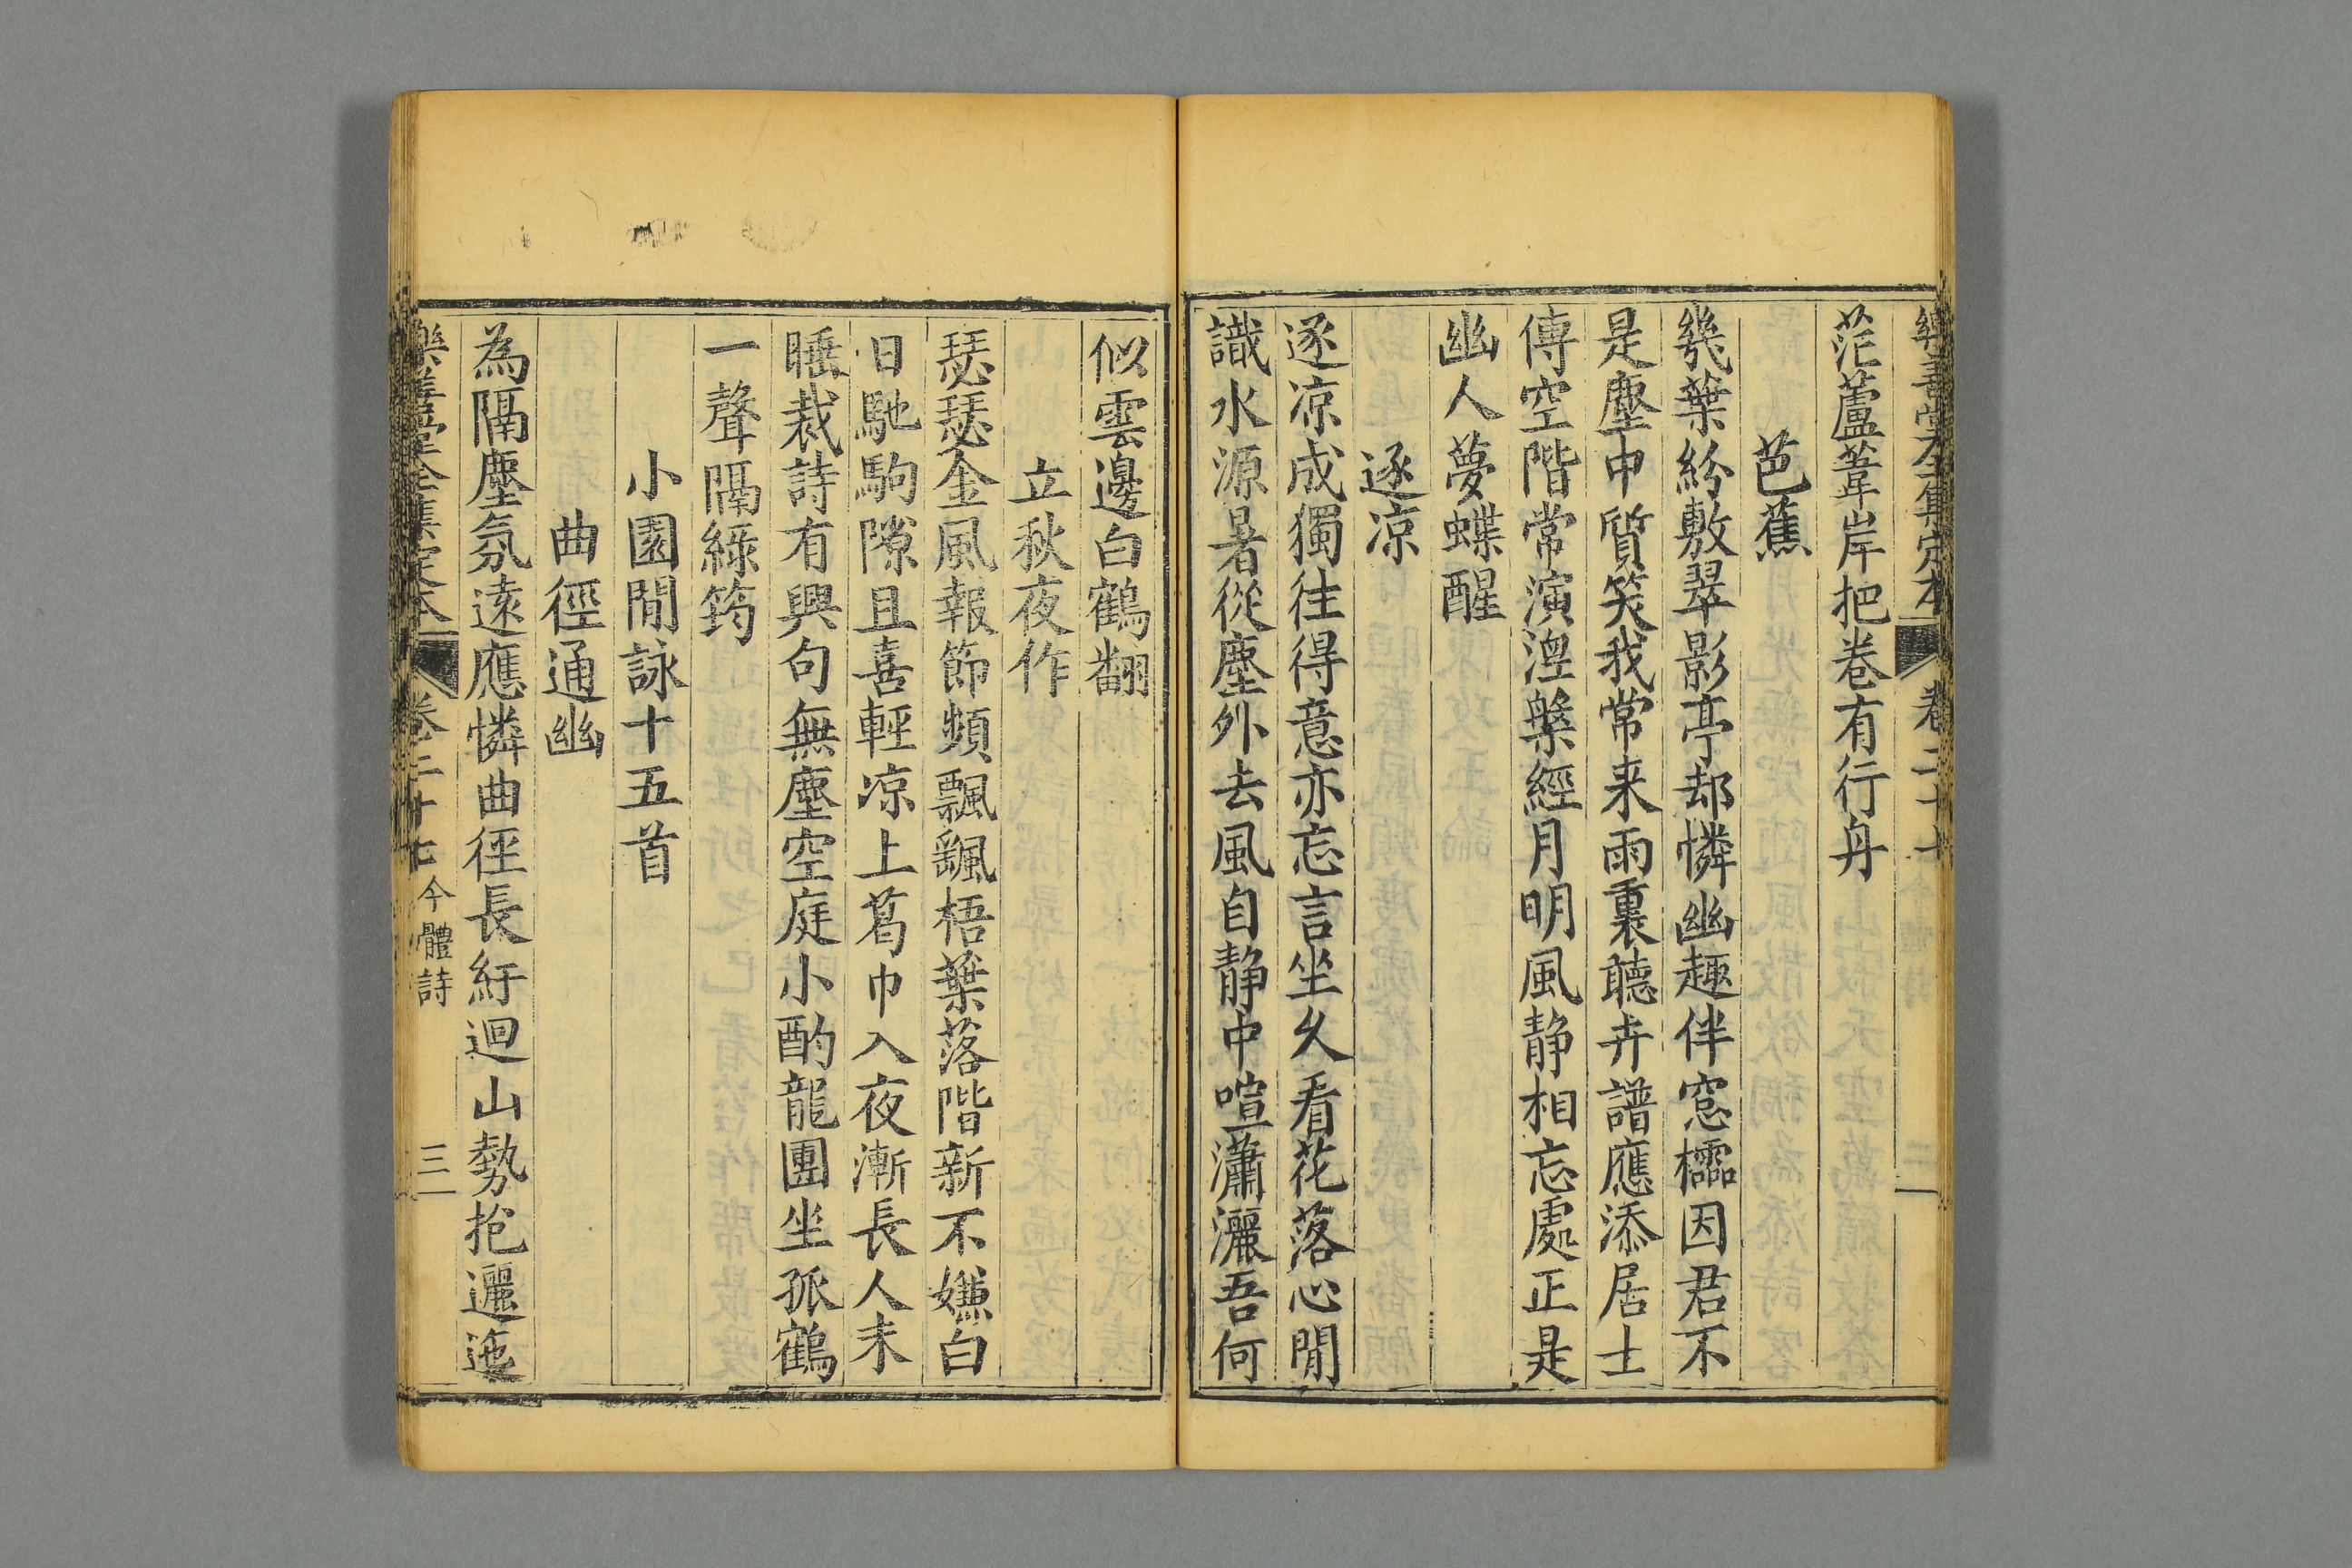 樂善堂全集定本 卷二十七
茫蘆葦岸把卷有行舟
芭蕉
幾葉紛敷翠影亭却憐幽趣伴窓櫺因君不
是塵中質笑我常来雨裏聽卉譜應添居士
傳空階常演湼槃經月明風静相忘處正是
幽人夢蝶醒
逐凉
逐凉成獨往得意亦忘言坐久看花落心閒
識水源暑從塵外去風自静中喧瀟灑吾何
似雲邊白鶴翻
立秋夜作
瑟瑟金風報節頻飄颻梧葉落階新不嫌白
日馳駒隙且喜輕凉上葛巾入夜漸長人未
睡裁詩有興句無塵空庭小酌龍團坐孤鶴
一聲隔綠筠
小園閒詠十五首
曲徑通幽
為隔塵氛遠應憐曲徑長紆迴山勢抱邐迤
樂善堂全集定本 卷二十七 今體詩 三